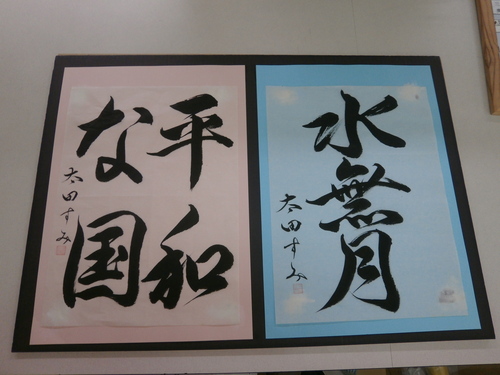 水無月
太田すみ
平和
な国
太田すみ